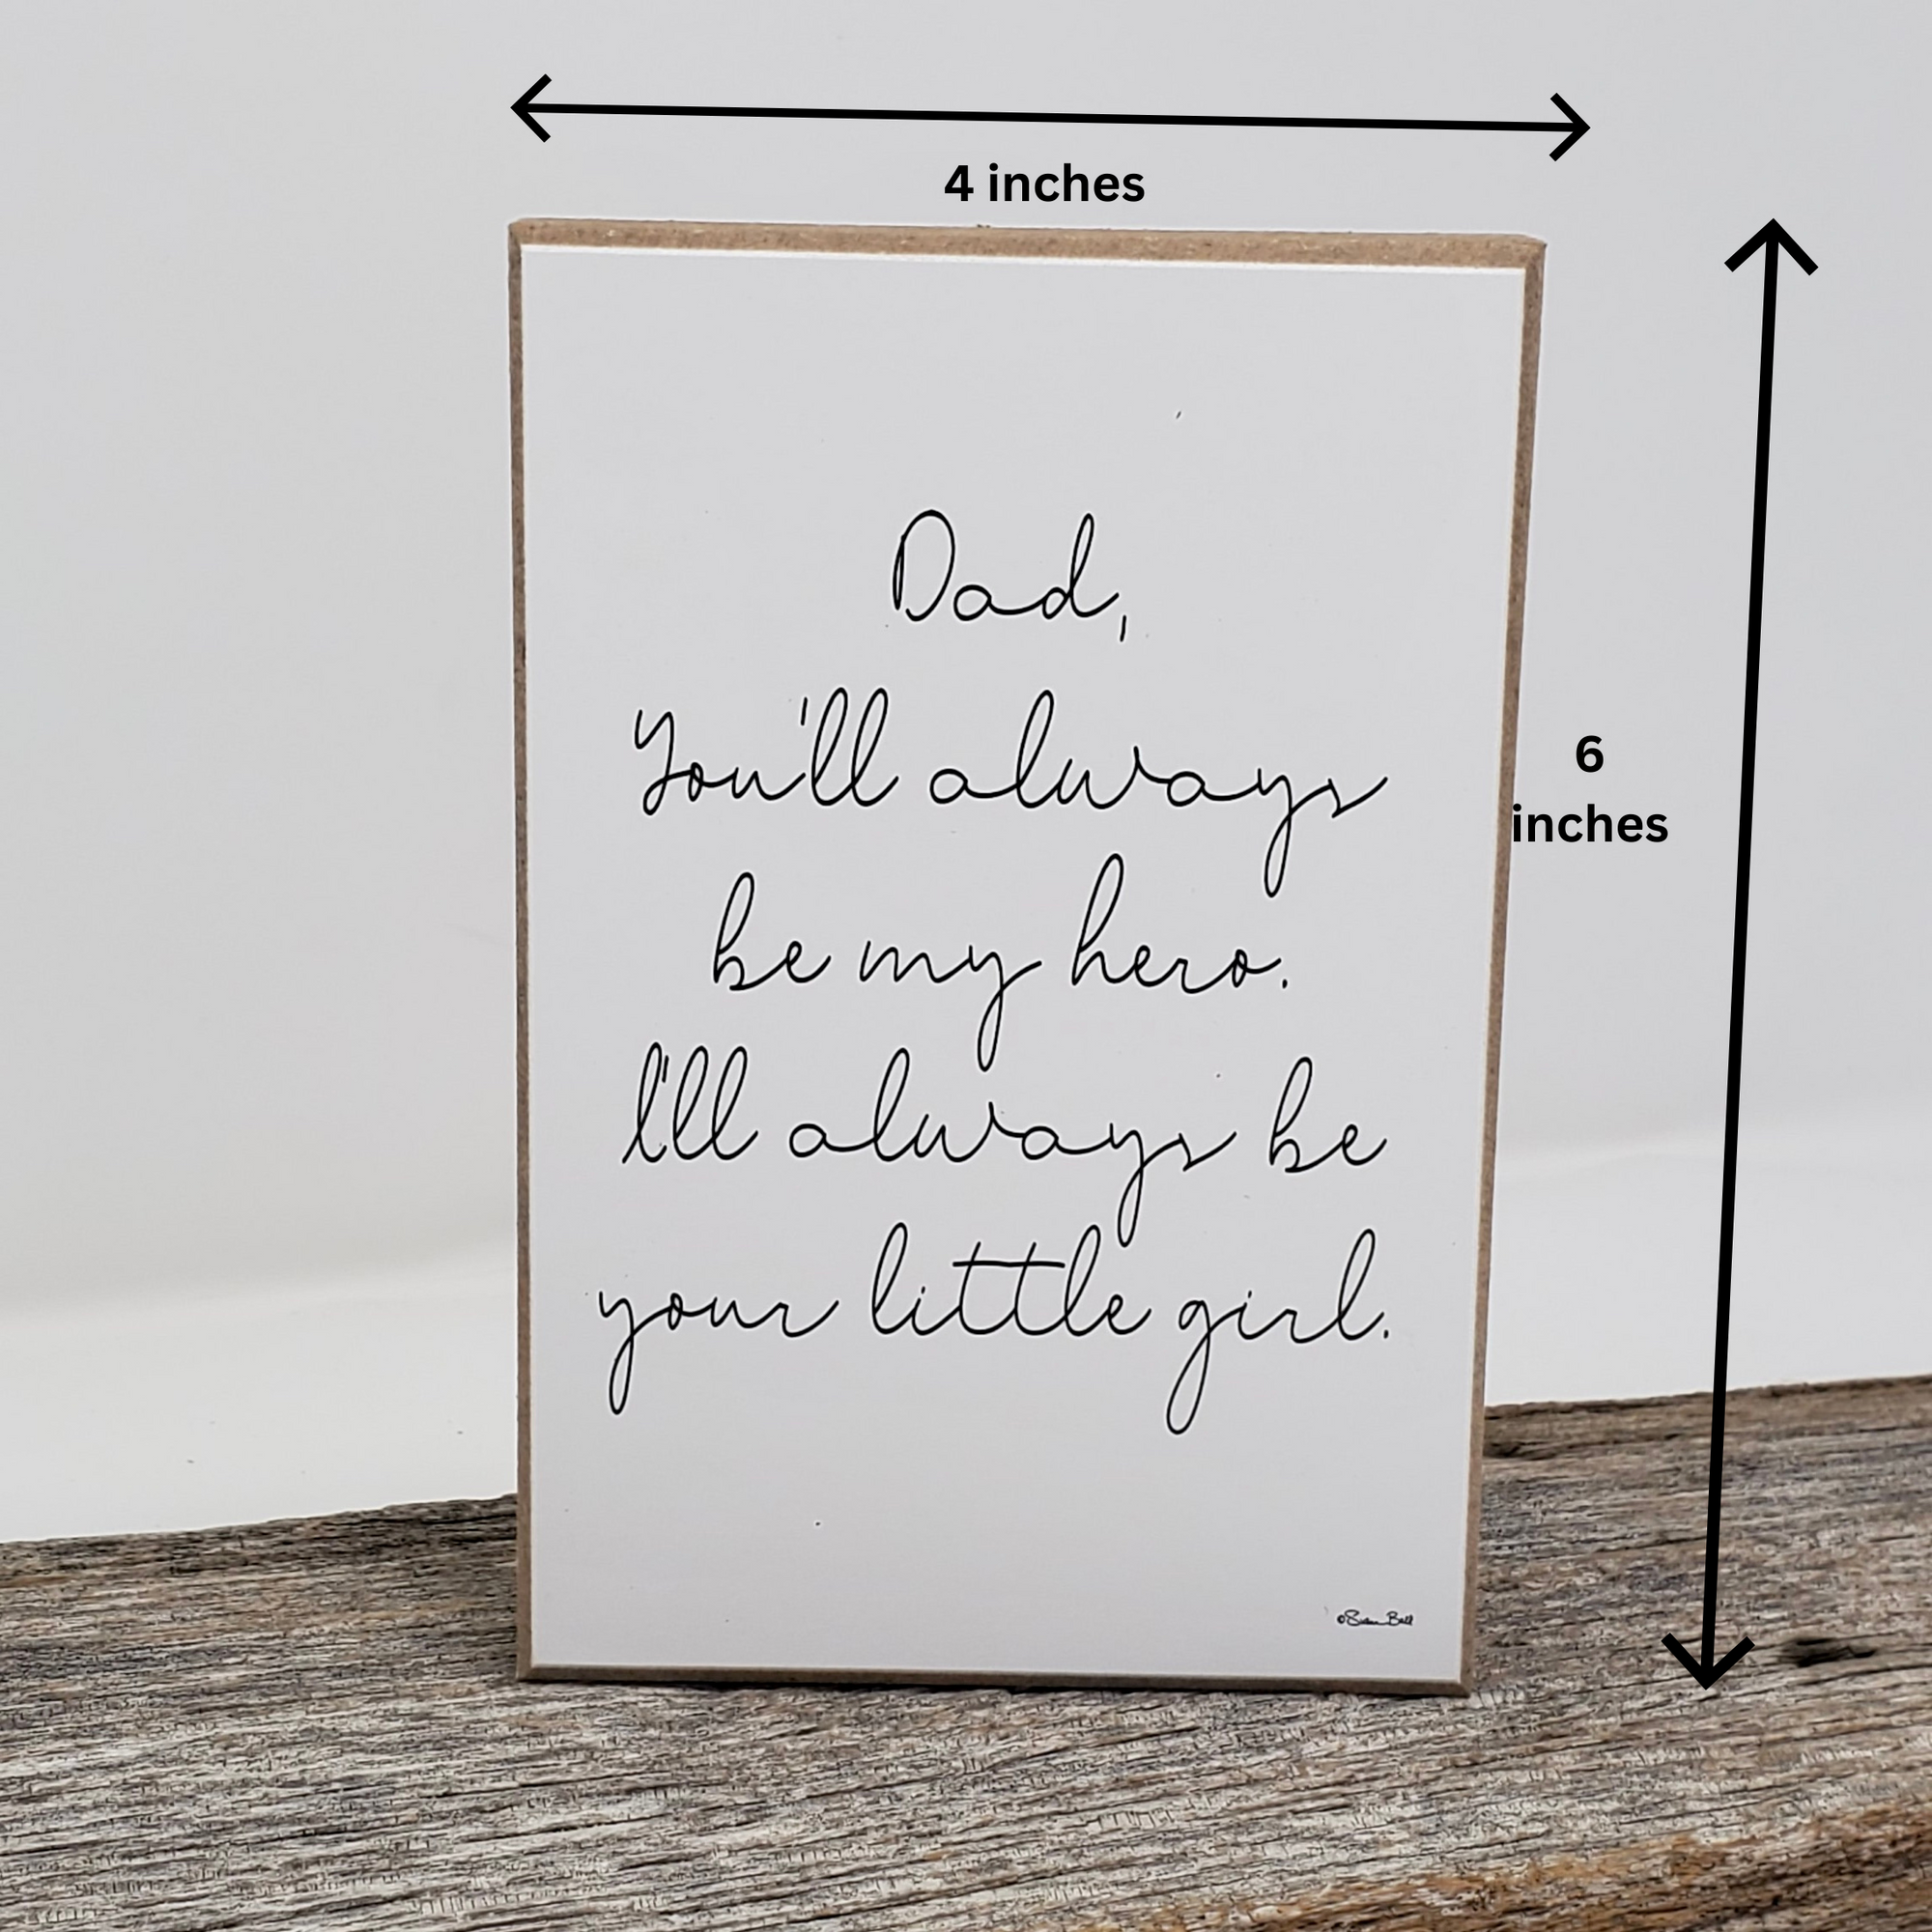 4 inches
Dad,
You'll always
be my hero.
I'll always be
your little girl.
6
inches
©Susan Ball